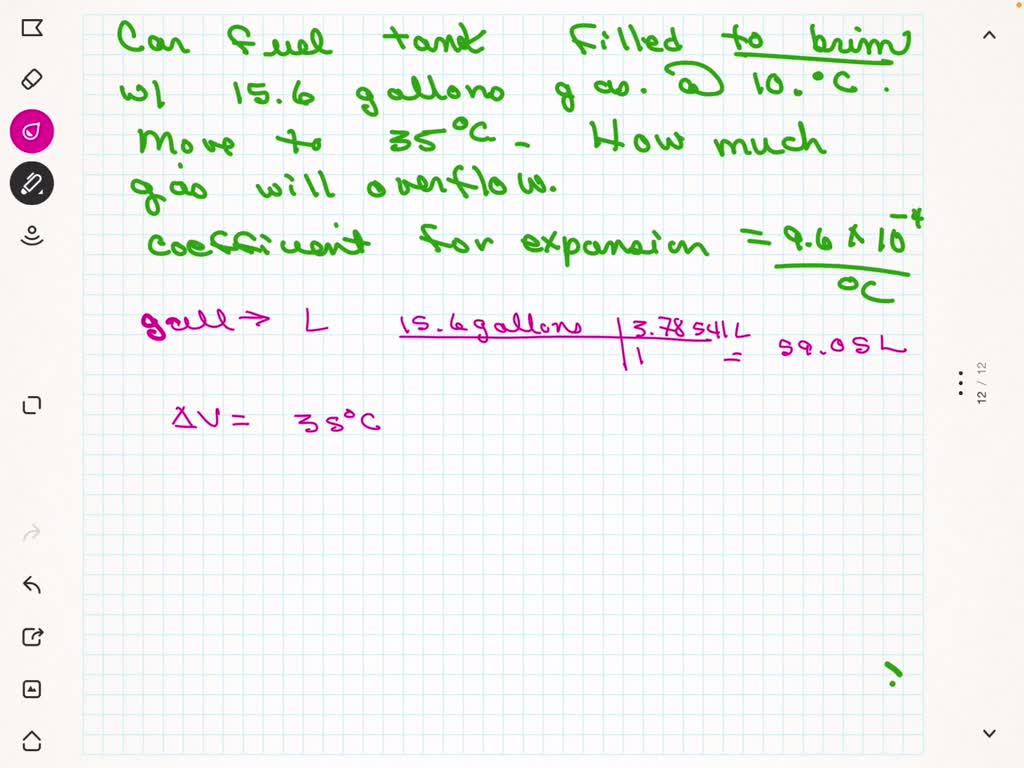 Car fuel tank filled to brim
w/ 15.6 gallons gas. @ 10.°C.
Move to 35°C. How much
gas will overflow.
coefficient for expansion = 9.6 x 10⁻⁴
°C
gall → L 15.6 gallons 3.78541 L
1 = 59.05 L
ΔV = 35°C
12 / 12